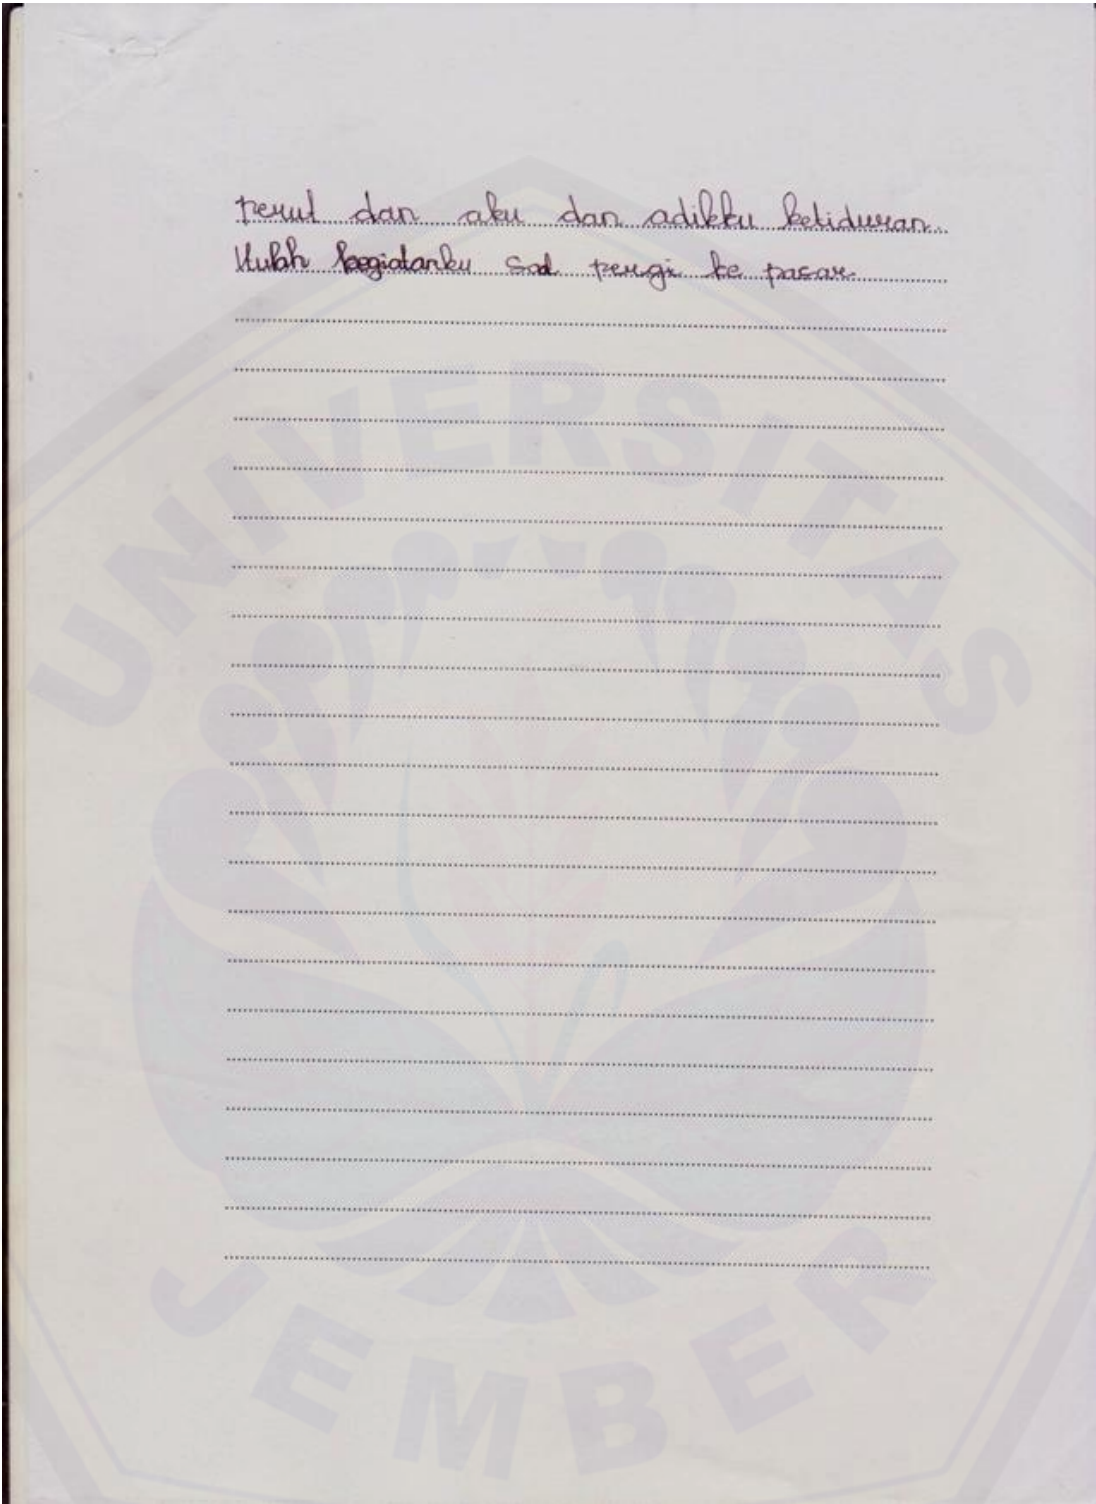 perut dan aku dan adikku ketiduran.
kegiatanku saat pergi ke pasar.
UNIVERSITAS
JEMBER